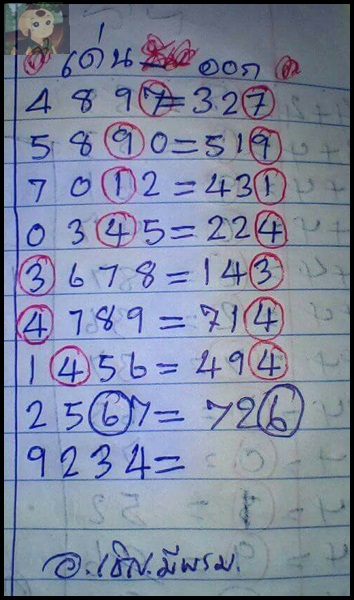 เด่น ออก
4 8 9 7 = 327
5 8 9 0 = 519
7 0 1 2 = 431
0 3 4 5 = 224
3 6 7 8 = 143
4 7 8 9 = 714
1 4 5 6 = 494
2 5 6 7 = 726
9 2 3 4 =
มีพรม.